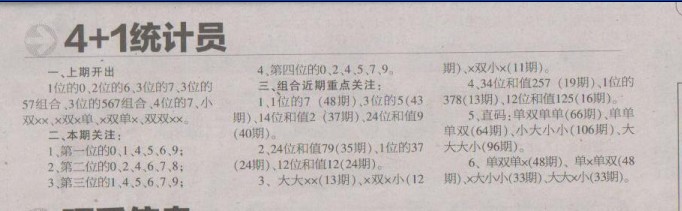 4+1统计员
一、上期开出
1位的0、2位的6、3位的7、3位的
57组合、3位的567组合、4位的7、小
双××、×双×单、×双单×、双双××。
二、本期关注:
1、第一位的0、1、4、5、6、9;
2、第二位的0、2、4、6、7、8;
3、第三位的1、4、5、6、7、9;
4、第四位的0、2、4、5、7、9。
三、组合近期重点关注:
1、1位的7（48期）、3位的5(43
期)、14位和值2（37期）、24位和值9
(40期)。
2、24位和值79(35期)、1位的37
(24期)、12位和值12(24期)。
3、大大××(13期)、×双×小(12
期)、×双小×(11期)。
4、34位和值257（19期）、1位的
378(13期)、12位和值125(16期)。
5、直码：单双单单(66期)、单单
单双(64期)、小大小小(106期)、大
大大小(96期)。
6、单双单×(48期)、单×单双(48
期)、×大小小(33期)、大大×小(33期)。